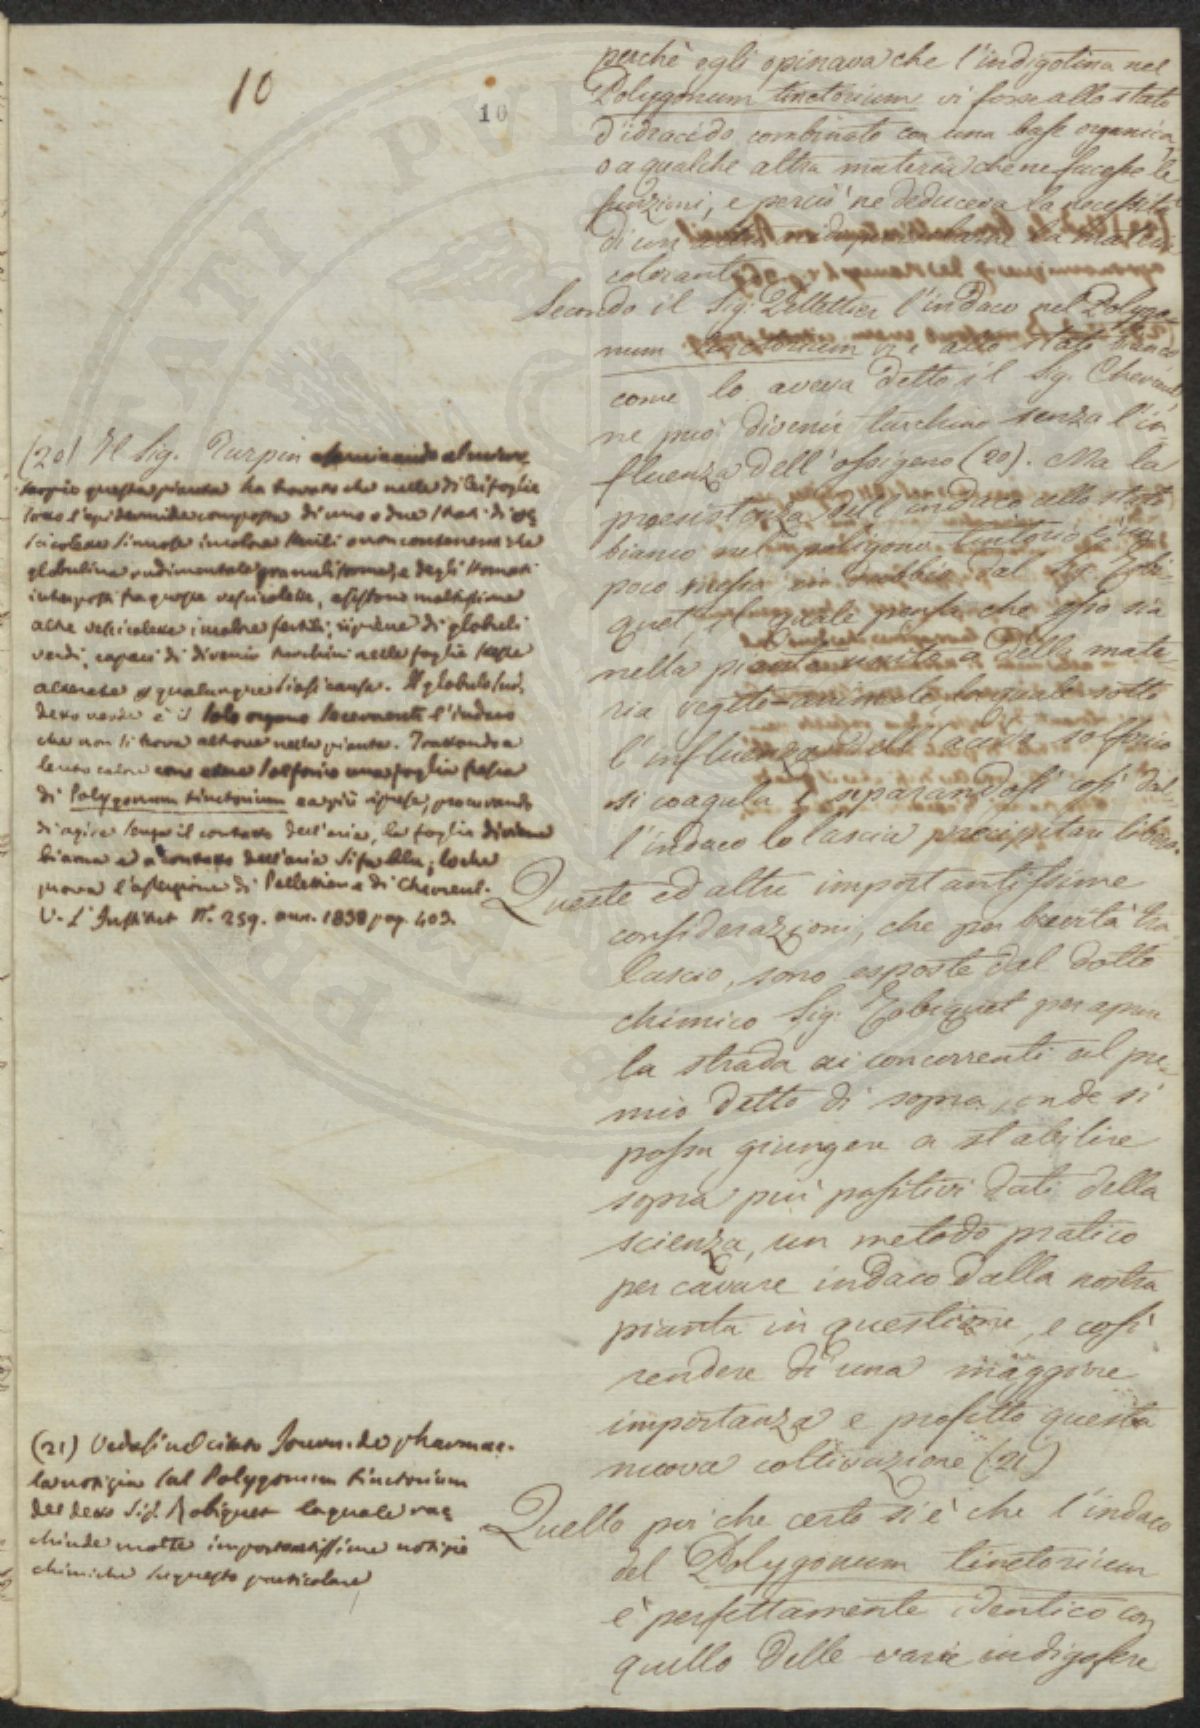 10
10
perchè egli opinava che l'indigotina nel
Polygonum tinctorium vi fosse allo stato
d'idracido combinato con una base organica,
o a qualche altra materia che ne facesse le
funzioni, e perciò ne deduceva la necessità
di un la materia
colorante
Secondo il Sig. Pelletier l'indaco nel Polygo-
num tinctorium vi è allo stato bianco
come lo aveva detto il Sig. Chevreul,
ne può divenir turchino senza l'in
fluenza dell'ossigeno (20). Ma la
preesistenza dell'indaco allo stato
bianco nel poligono tintorio è
poco messa in dubbio dal Sig. Robi-
quet, il quale pensa che esso sia
nella pianta unito a della mate-
ria vegeto-animale la quale sotto
l'influenza dell'acido solforico
si coagula e separandosi così dal-
l'indaco lo lascia precipitare libero.
Queste ed altre importantissime
considerazioni, che per brevità tra-
lascio, sono esposte dal dotto
chimico Sig. Robiquet per aprir
la strada ai concorrenti al pre-
mio detto di sopra, onde si
possa giungere a stabilire
sopra più positivi dati della
scienza, un metodo pratico
per cavare indaco dalla nostra
pianta in questione, e così
rendere di una maggiore
importanza e profitto questa
nuova coltivazione (21)
Quello poi che certo si è che l'indaco
del Polygonum tinctorium
è perfettamente identico con
quello delle varie indigofere
(20) Il Sig. Turpin esaminando al micro
scopio questa pianta ha trovato che nelle di lei foglie
sotto l'epidermide composta di uno o due strati di ve
scicolette vuote incolore sterili o non contenenti che
globulina rudimentale e degli stomati
interposti fra queste vescicolette, esistono moltissime
altre vescicolette incolore fertili, ripiene di globuli
verdi, capaci di divenir turchini nelle foglie stesse
alterate da qualunque siasi causa. Il globulo sud-
detto verde è il solo organo secernente l'indaco
che non si trova altrove nella pianta. Trattando a
lento calore con una foglia fresca
di Polygonum tinctorium a più riprese, procurando
di agire senza il contatto dell'aria, la foglia diviene
bianca ed a contatto dell'aria si fa blu; lo che
prova l'asserzione di Pelletier e di Chevreul.
V. L'Institut N.º 259. ann. 1838 pag. 403.
(21) Vedasi nel citato Journ. de pharmac.
la notizia sul Polygonum tinctorium
del detto Sig. Robiquet la quale rac
chiude molte importantissime notizie
chimiche su questo particolare